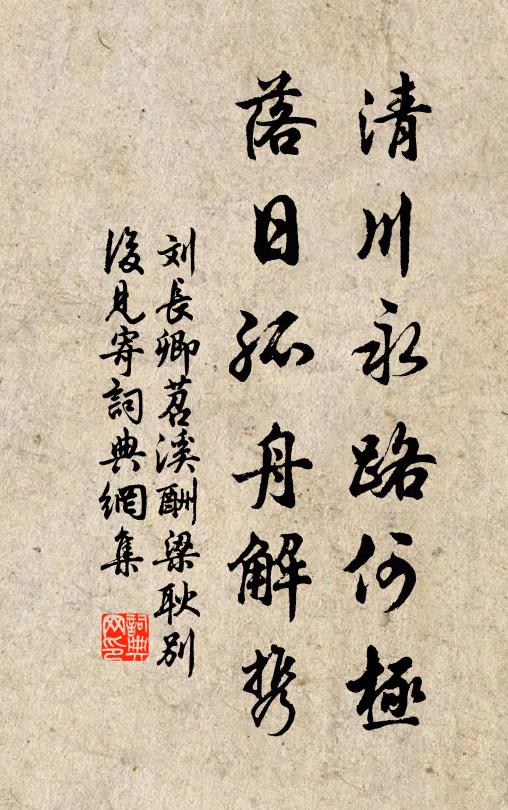 清川永路何極
落日孤舟解携
刘長卿苕溪酬梁耿别
後見寄詞典網集
詞典
网印